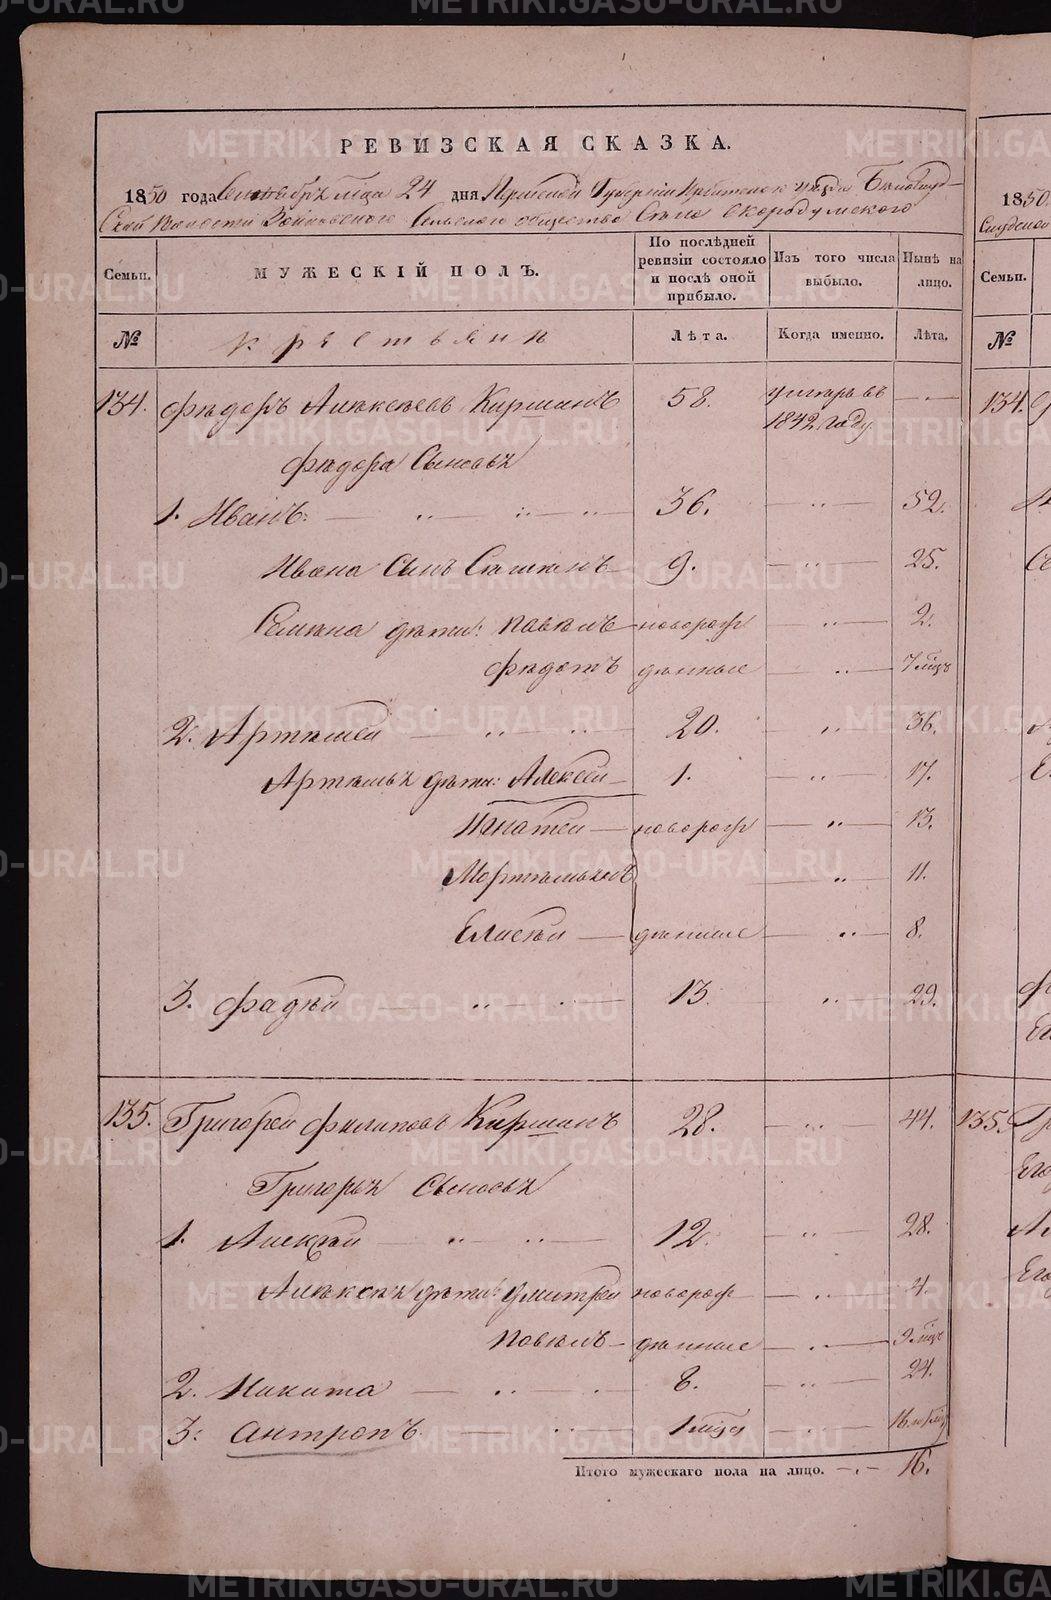 РЕВИЗСКАЯ СКАЗКА.
1850 года Сентября м̃ца 24 дня Пермской Губернiи Ирбитскаго уезда Белослуд-
ской Волости Зайковского Сельского общества Села Скородумского
Семьи. МУЖЕСКІЙ ПОЛЪ. По послѣдней ревизіи состояло и послѣ оной прибыло. Изъ того числа выбыло. Нынѣ на лицо.
№ крестьянъ Лѣта. Когда именно. Лѣта.
134. Фѣдоръ Алѣксѣевъ Киршинъ 58. умеръ въ 1842 году — . —
Фѣдора Сыновья
1. Иванъ: 36. 52.
Ивана Сынъ Сѣмѣнъ 9. 25.
Семѣна дѣти: Павѣлъ новорож 2.
Фѣдотъ дѣнные 7 мцъ
2. Артѣмей 20. 36.
Артѣмья дѣти: Алексѣй 1. 17.
Игнатей новорож 13.
Мортѣмьянъ 11.
Елисѣй дѣнные 8.
3. Фадѣй 13. 29.
135. Григорей Филиповъ Киршинъ 28. 44.
Григорья Сыновья
1. Алексѣй 12. 28.
Алѣксѣя дѣти: Дмитрей новорож 4.
Павѣлъ дѣнные 9 мцъ
2. Никита 8. 24.
3. Антропъ 1 мцъ 16 лѣт
Итого мужескаго пола на лицо. — . — 16.
1850
Семьи.
№
134.
135.